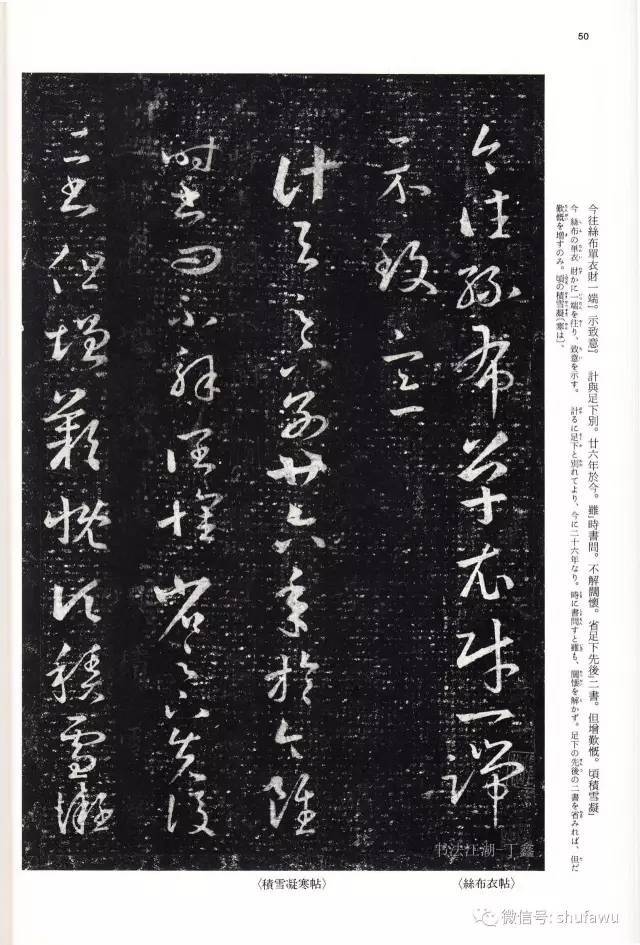 50
今往絲布單衣財一端』。示致意』。 計與足下別。廿六年於今。雖』時書問。不解闊懷。省足下先後』二書。但增歎慨。頃積雪凝』
今 絲布の単衣 財かに一端を往り、致意を示す。 計るに足下と別れてより、今に二十六年なり。時に書問すと雖も、闊懷を解かず。足下の先後の二書を省みれば、但だ
歎慨を増すのみ。頃の積雪凝〔寒は〕、
今往絲布單衣財一端
示致意
計與足下別廿六年於今雖
時書問不解闊懷省足下先後
二書但增歎慨頃積雪凝
书法江湖-丁鑫
〈絲布衣帖〉
〈積雪凝寒帖〉
微信号: shufawu